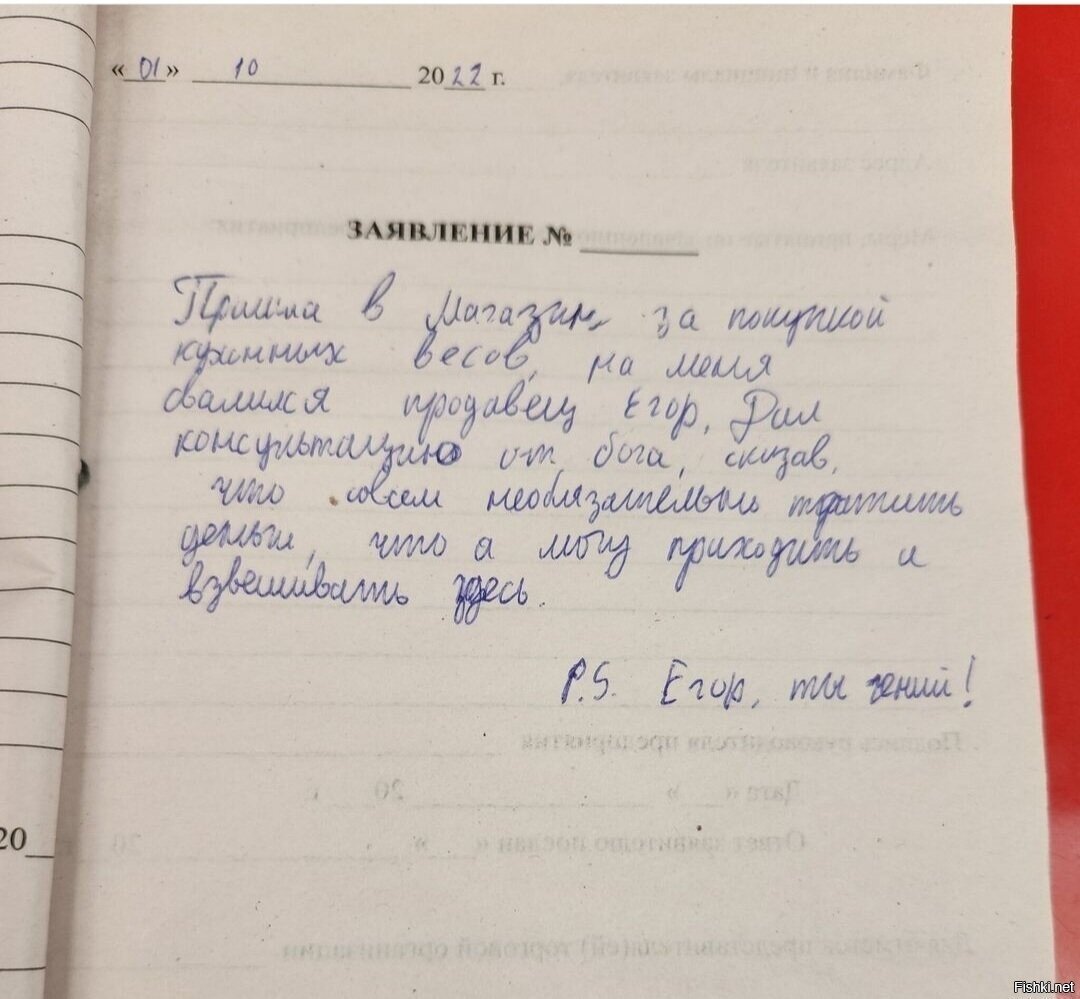 « 01 » 10 2022 г.
ЗАЯВЛЕНИЕ №
Пришла в магазин за покупкой
кухонных весов, на меня
свалился продавец Егор, Дал
консультацию от бога, сказав,
что совсем необязательно тратить
деньги, что я могу приходить и
взвешивать здесь.
P.S. Егор, ты гений!
20
Fishki.net